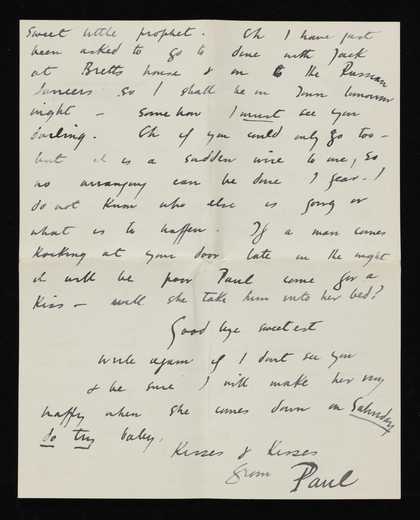 Sweet little prophet. Oh I have just
been asked to go to dine with Jack
at Bretts house & on to the Russian
dancers so I shall be in Town tomorrow
night – somehow I must see you
darling. Oh if you could only go too –
but it is a sudden wire to me, so
no arranging can be done I fear. I
do not know who else is going or
what is to happen. If a man comes
knocking at your door late in the night
it will be poor Paul come for a
kiss – will she take him into her bed?
Good bye sweetest
write again if I dont see you
& be sure I will make her very
happy when she comes down on Saturday
do try baby.
Kisses & Kisses
from Paul